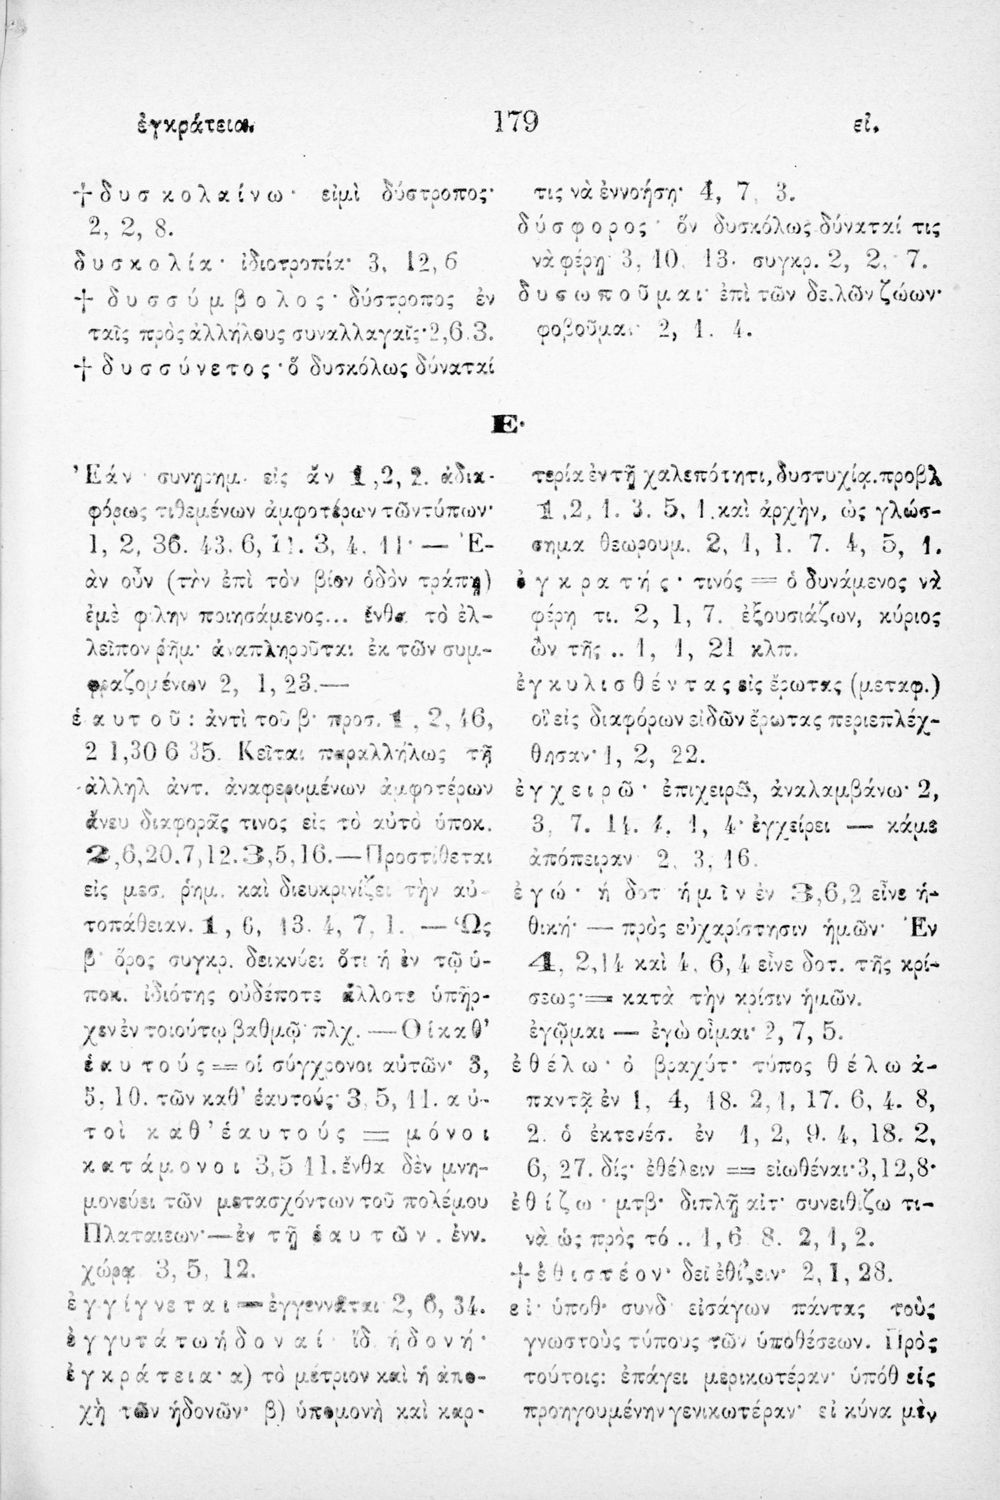 ἐγκράτεια. 179 εἰ.
† δυσκολαίνω· εἰμὶ δύστροπος·
2, 2, 8.
δυσκολία· ἰδιοτροπία· 3, 12, 6
† δυσσύμβολος· δύστροπος ἐν
ταῖς πρὸς ἀλλήλους συναλλαγαῖς· 2,6.3.
† δυσσύνετος· ὃ δυσκόλως δύναταί
τις νὰ ἐννοήσῃ· 4, 7, 3.
δύσφορος· ὃν δυσκόλως δύναταί τις
νὰ φέρῃ 3, 10, 13. συγκρ. 2, 2, 7.
δυσωποῦμαι· ἐπὶ τῶν δειλῶν ζώων·
φοβοῦμαι· 2, 1. 4.
Ε·
Ἐάν· συνηρημ. εἰς ἄν 1,2, 2. ἀδια-
φόρως τιθεμένων ἀμφοτέρων τῶν τύπων·
1, 2, 36. 43. 6, 11. 3, 4. 11· — Ἐ-
ὰν οὖν (τὴν ἐπὶ τὸν βίον ὁδὸν τράπῃ)
ἐμὲ φίλην ποιησάμενος... ἔνθα τὸ ἐλ-
λεῖπον ῥῆμ· ἀναπληροῦται ἐκ τῶν συμ-
φραζομένων 2, 1, 23.—
ἑαυτοῦ: ἀντὶ τοῦ β· προσ. 1, 2, 46,
2 1,30 6 35. Κεῖται παραλλήλως τῇ
ἀλληλ ἀντ. ἀναφερομένων ἀμφοτέρων
ἄνευ διαφορᾶς τινος εἰς τὸ αὐτὸ ὑποκ.
2,6,20.7,12.3,5,16.—Προστίθεται
εἰς μεσ. ῥημ. καὶ διευκρινίζει τὴν αὐ-
τοπάθειαν. 1, 6, 13. 4, 7, 1. — Ὡς
β· ὅρος συγκρ. δεικνύει ὅτι ἡ ἐν τῷ ὑ-
ποκ. ἰδιότης οὐδέποτε ἄλλοτε ὑπῆρ-
χεν ἐν τοιούτῳ βαθμῷ· πλχ. — Οἱ καθ'
ἑαυτούς = οἱ σύγχρονοι αὐτῶν· 3,
5, 10. τῶν καθ' ἑαυτούς· 3, 5, 11. αὐ-
τοὶ καθ' ἑαυτούς = μόνοι
καταμόνοι 3,5 11. ἔνθα δὲν μνη-
μονεύει τῶν μετασχόντων τοῦ πολέμου
Πλαταιέων·— ἐν τῇ ἑαυτῶν. ἐνν.
χώρᾳ 3, 5, 12.
ἐγγίγνεται = ἐγγεννᾶται 2, 6, 34.
ἐγγυτάτω ἡδοναί· ἰδ ἡδονή·
ἐγκράτεια· α) τὸ μέτριον καὶ ἡ ἀπο-
χὴ τῶν ἡδονῶν· β) ὑπομονὴ καὶ καρ-
τερία ἐν τῇ χαλεπότητι, δυστυχίᾳ. προβλ
1,2, 1. 3. 5, 1. καὶ ἀρχὴν, ὡς γλώσ-
σημα θεωρουμ. 2, 1, 1. 7. 4, 5, 1.
ἐγκρατής· τινός = ὁ δυνάμενος νὰ
φέρῃ τι. 2, 1, 7. ἐξουσιάζων, κύριος
ὢν τῆς .. 1, 1, 21 κλπ.
ἐγκυλισθέντας εἰς ἔρωτας (μεταφ.)
οἳ εἰς διαφόρων εἰδῶν ἔρωτας περιεπλέχ-
θησαν· 1, 2, 22.
ἐγχειρῶ· ἐπιχειρῶ, ἀναλαμβάνω· 2,
3, 7. 14. 4, 1, 4· ἐγχείρει — κάμε
ἀπόπειραν 2, 3, 16.
ἐγώ· ἡ δοτ ἡμῖν ἐν 3,6,2 εἶνε ἠ-
θική· — πρὸς εὐχαρίστησιν ἡμῶν· Ἐν
4, 2,14 καὶ 4, 6, 4 εἶνε δοτ. τῆς κρί-
σεως·= κατὰ τὴν κρίσιν ἡμῶν.
ἐγῷμαι — ἐγὼ οἶμαι· 2, 7, 5.
ἐθέλω· ὁ βραχύτ· τύπος θέλω ἀ-
παντᾷ ἐν 1, 4, 18. 2,1, 17. 6, 4. 8,
2. ὁ ἐκτενέσ. ἐν 1, 2, 9. 4, 18. 2,
6, 27. δίς· ἐθέλειν = εἰωθέναι· 3,12,8·
ἐθίζω· μτβ· διπλῇ αἰτ· συνειθίζω τι-
νὰ ὡς πρὸς τό .. 1, 6 8. 2, 1, 2.
† ἐθιστέον· δεῖ ἐθίζειν· 2, 1, 28.
εἰ· ὑποθ· συνδ· εἰσάγων πάντας τοὺς
γνωστοὺς τύπους τῶν ὑποθέσεων. Πρὸς
τούτοις: ἐπάγει μερικωτέραν· ὑπόθ εἰς
προηγουμένην γενικωτέραν· εἰ κύνα μὲν